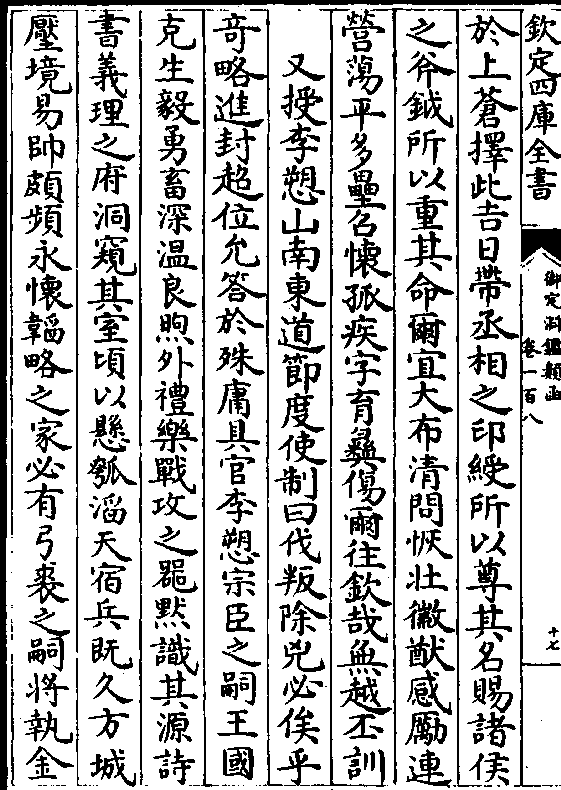 欽定四庫全書
御定淵鑑類函
卷一百八
十七
於上蒼擇此吉日帶丞相之印綬所以尊其名賜諸侯
之斧鉞所以重其命爾宜大布清問恢壯徽猷感勵連
營蕩平多壘呂懷孤疾字育彝傷爾往欽哉無越丕訓
又授李愬山南東道節度使制曰伐叛除兇必俟乎
奇略進封超位允答於殊庸具官李愬宗臣之嗣王國
克生毅勇畜深溫良煦外禮樂戰攻之器默識其源詩
書義理之府洞窺其室頃以懸瓠滔天宿兵既久方城
壓境易帥頗頻永懷韜略之家必有弓裘之嗣將執金